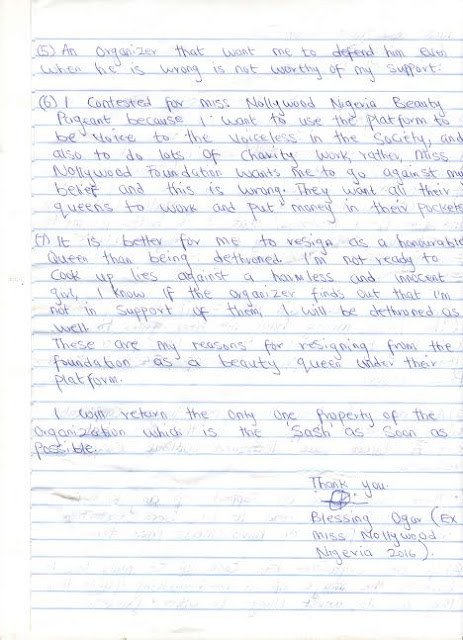 (5) An Organizer that want me to defend him even
when he is wrong is not worthy of my support.
(6) I Contested for miss Nollywood Nigeria Beauty
Pageant because I want to use the platform to
be voice to the voiceless in the Society, and
also to do lots of Charity work, rather, Miss
Nollywood Foundation wants me to go against my
belief and this is wrong. They want all their
queens to work and put money in their pockets
(7) It is better for me to resign as a honourable
Queen than being dethroned. I'm not ready to
Cook up lies against a harmless and innocent
girl, I know if the organizer finds out that I'm
not in support of them, I will be dethroned as
well.
These are my reasons for resigning from the
foundation as a beauty queen under their
platform.
I will return the only one Property of the
Organization which is the 'Sash' as Soon as
possible.
Thank you.
Blessing Ogar (Ex
miss Nollywood
Nigeria 2016).